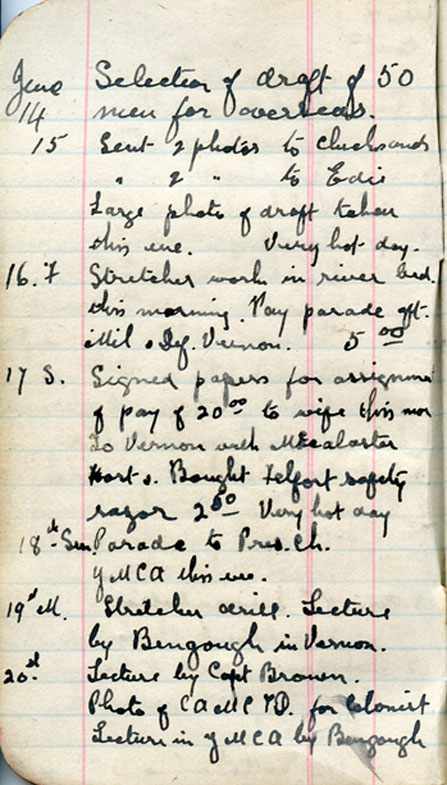 June Selection of draft of 50
14 men for overseas.
15 Sent 2 photos to Chicksands
" 2 " to Edie
Large photo of draft taken
this eve. Very hot day.
16. F Stretcher work in river bed.
this morning. Pay parade aft.
Mil & Def. Vernon. 5 00
17 S. Signed papers for assignment
of pay of 20 00 to wife this mor
To Vernon with
Bought safety
razor 2 50 Very hot day
18 Sun. Parade to Pres. Ch.
YMCA this eve.
19 M. Stretcher drill. Lecture
by Bengough in Vernon.
20 Lecture by Capt Brown.
Photo of CAMC TD. for Colonist
Lecture in YMCA by Bengough